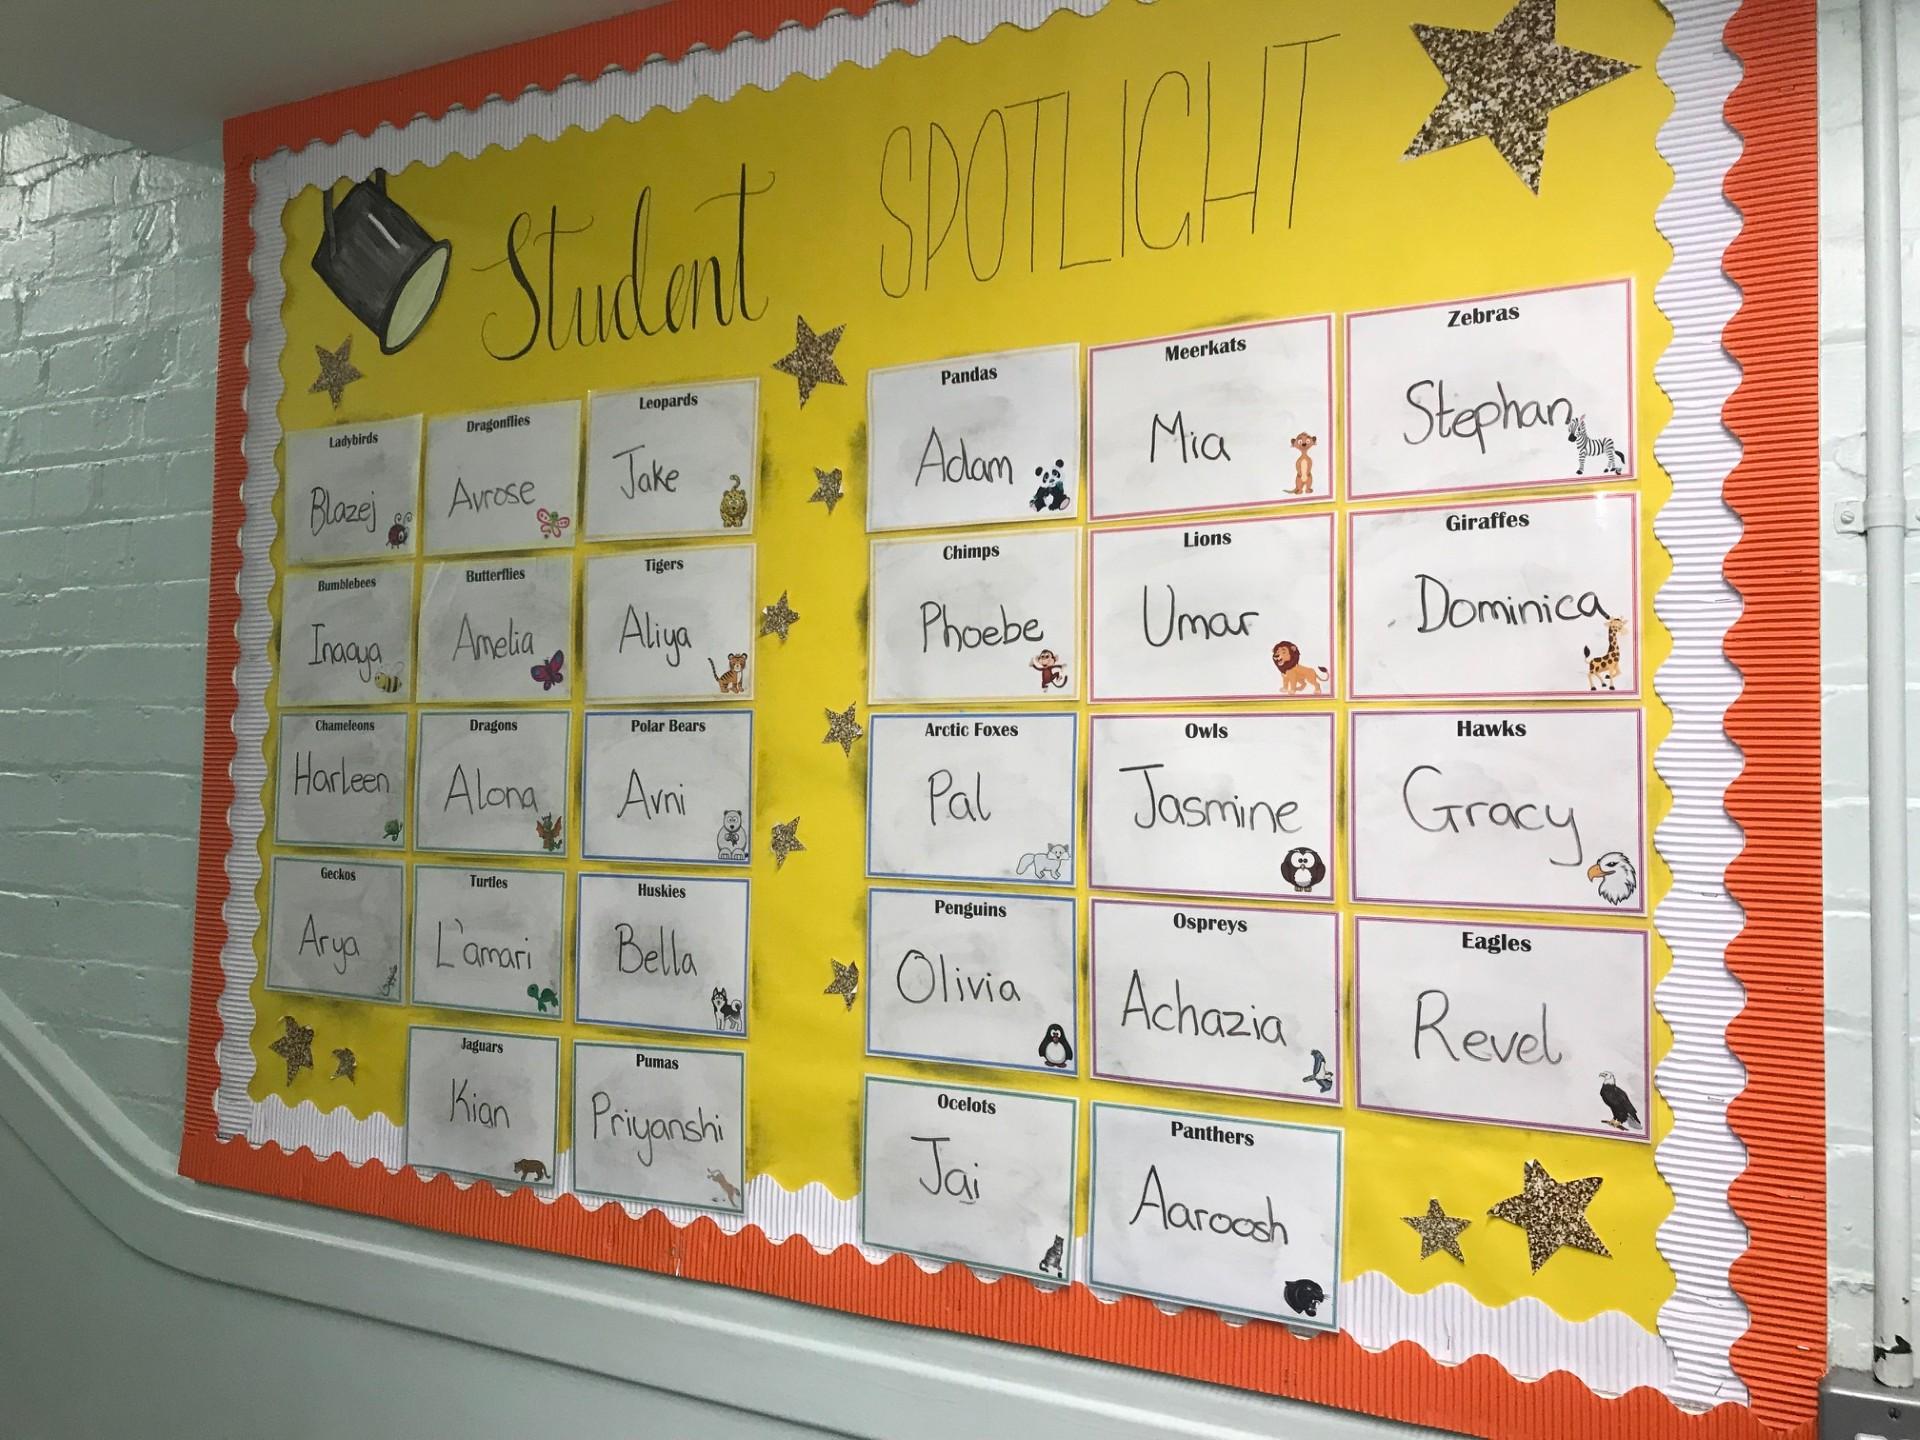 Student SPOTLIGHT
Ladybirds
Blazej
Dragonflies
Avrose
Leopards
Jake
Bumblebees
Inaaya
Butterflies
Amelia
Tigers
Aliya
Chameleons
Harleen
Dragons
Alona
Polar Bears
Avni
Geckos
Arya
Turtles
L'amari
Huskies
Bella
Jaguars
Kian
Pumas
Priyanshi
Pandas
Adam
Meerkats
Mia
Zebras
Stephan
Chimps
Phoebe
Lions
Umar
Giraffes
Dominica
Arctic Foxes
Pal
Owls
Jasmine
Hawks
Gracy
Penguins
Olivia
Ospreys
Achazia
Eagles
Revel
Ocelots
Jai
Panthers
Aaroosh